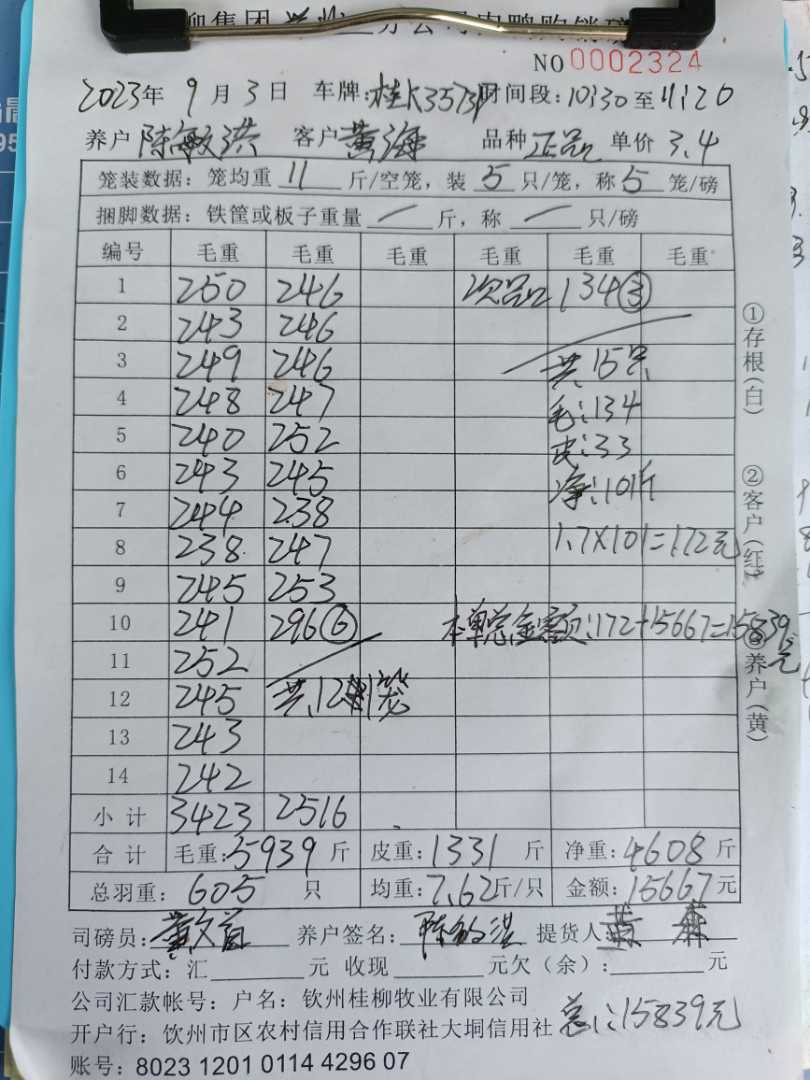 柳集团 兴业二分公司肉鸭购销磅
NO 0002324
2023年 9月 3日 车牌:桂K3573 时间段:10:30至11:20
养户 陈敏洪 客户 黄海 品种 正品 单价 3.4
笼装数据:笼均重 11 斤/空笼,装 5 只/笼,称 5 笼/磅
捆脚数据:铁筐或板子重量 / 斤,称 / 只/磅
编号 毛重 毛重 毛重 毛重 毛重 毛重
1 250 246 次品 134③
2 243 246
3 249 246 共15只
4 248 247 毛:134
5 240 252 皮:33
6 243 245 净:101斤
7 244 238
8 238 247 1.7×101=172元
9 245 253
10 241 296⑥ 本单总金额:172+15667=15839元
11 252
12 245 共121笼
13 243
14 242
小计 3423 2516
合计 毛重:5939斤 皮重:1331斤 净重:4608斤
总羽重:605只 均重:7.62斤/只 金额:15667元
司磅员: 养户签名:陈敏洪 提货人
付款方式:汇 元 收现 元欠(余): 元
公司汇款帐号:户名:钦州桂柳牧业有限公司
开户行:饮州市区农村信用合作联社大垌信用社 总:15839元
账号:8023 1201 0114 4296 07
①存根(白)
②客户(红)
养户(黄)